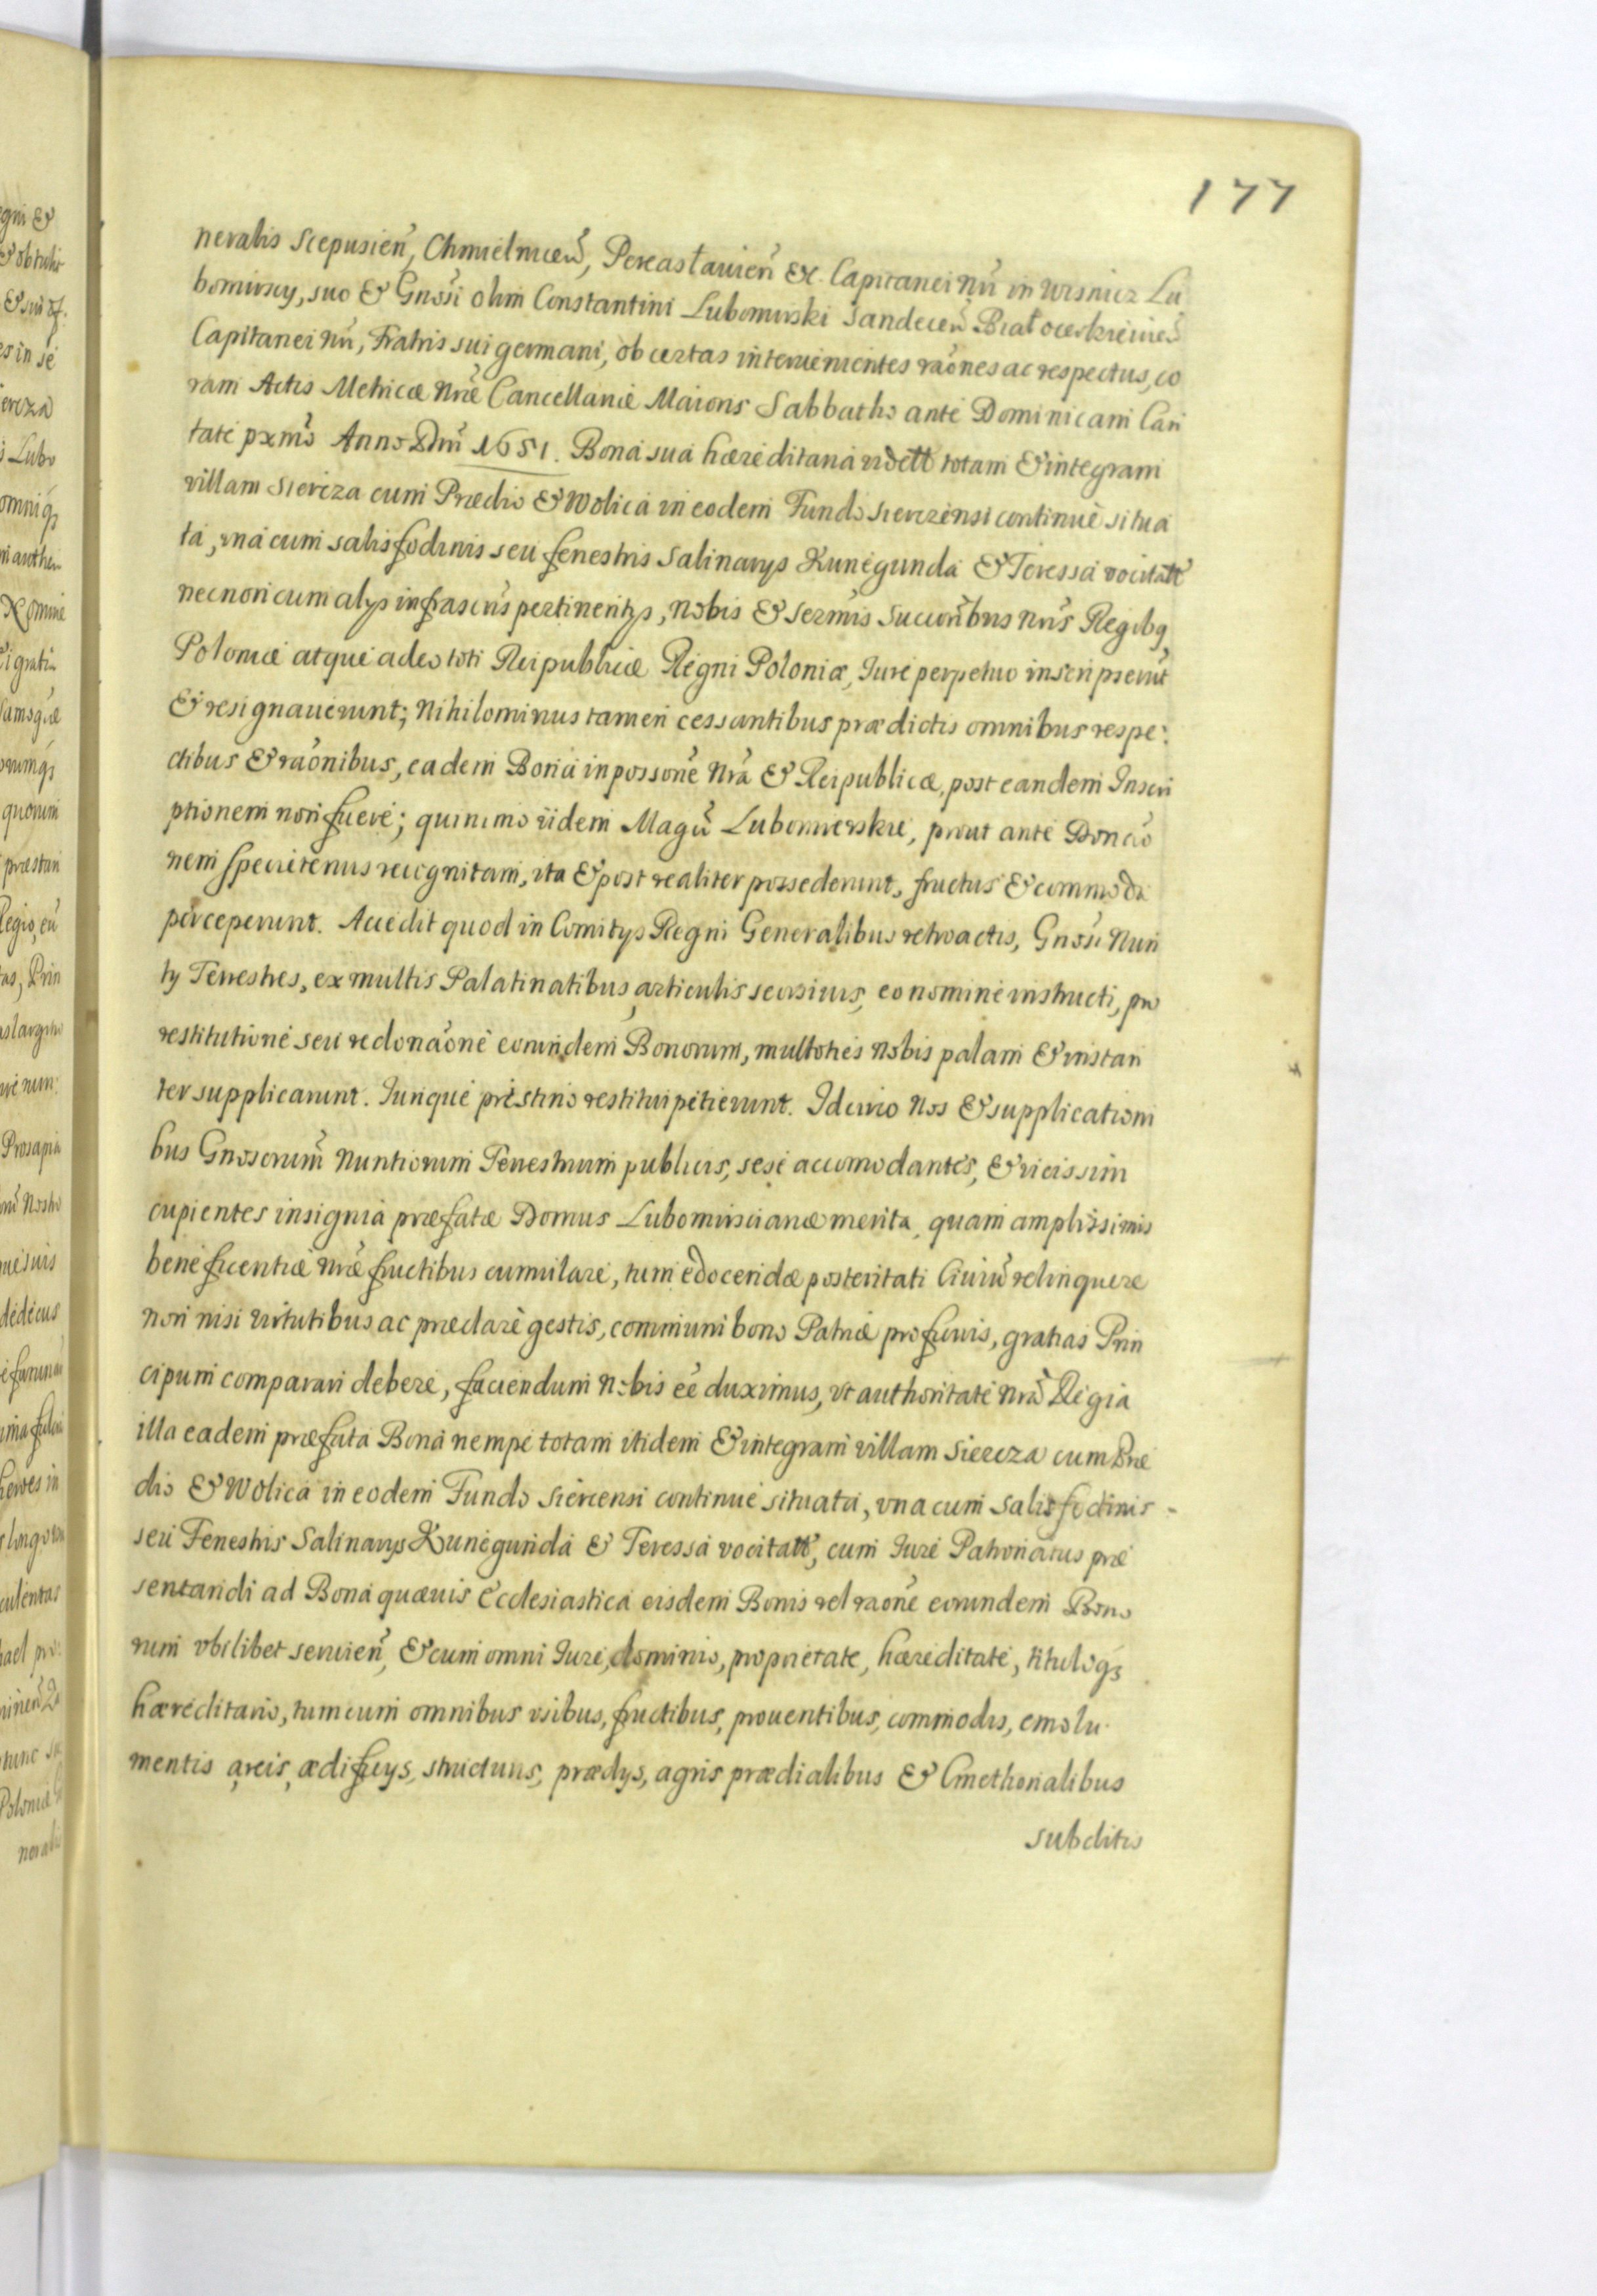 177
neralis Scepusien̄, Chmielnicen̄, Pereasłauien̄ &c. Capitanei nr̄i in Wisnicz Lu
bomirscy, suo & Gnōsi olim Constantini Lubomirski Sandecen̄ Białocerkieuien̄
Capitanei nr̄i, Fratris sui germani, ob certas interuenientes rāones ac respectus, co
ram Actis Metricæ nrǣ Cancellariæ Maioris Sabbatho ante Dominicam Can
tate pxmō Anno Dnī 1651. Bona sua hæreditaria vidett totam & integram
villam Siercza cum Prædio & Wolica in eodem Fundo Sierczensi continuè situa
ta, vna cum salisfodinis seu fenestris Salinarys Kunegunda & Teressa vocitatt
necnon cum alys infrascris pertinentys, nobis & Sermis Succōribus nrīs Regibq
Poloniæ atque adeo toti Reipublicæ Regni Poloniæ, Iure perpetuo inscripserūt
& resignauerunt; Nihilominus tamen cessantibus prædictis omnibus respe:
ctibus & rāonibus, eadem Bona in possōne nrā & Reipublicæ, post eandem Inscri
ptionem non fuere; quinimo ijdem Magcī Lubomierskie, prout ante Donāo
nem specietenus recognitam, ita & post realiter possederunt, fructus & commoda
perceperunt. Accedit quod in Comitys Regni Generalibus retroactis, Gnōsi Nun
ty Terrestres, ex multis Palatinatibus, articulis seorsiuis, eo nomine instructi, pro
restitutione seu redonāone eorundem Bonorum, multoties nobis palam & instan
ter supplicarunt. Iurique pristino restitui petierunt. Idcirco nos & supplicationi
bus Gnosorum̄ Nuntiorum Terrestrium publicis, sese accomodantes, & vicissim
cupientes insignia præfatæ Domus Lubomirscianæ merita, quam amplissimis
beneficentiæ nrǣ fructibus cumulare, tum edocendæ posteritati Ciuiū relinquere
non nisi virtutibus ac præclarè gestis, communi bono Patriæ proficuis, gratias Prin
cipum comparari debere, faciendum Nobis eē duximus, vt authoritate nrā Regia
illa eadem præfata Bona nempe totam itidem & integram villam Siercza cum Præ
dio & Wolica in eodem Fundo Siercensi continue situata, vna cum salisfodinis -
seu Fenestris Salinarys Kunegunda & Teressa vocitatt, cum Iure Patronatus præ
sentandi ad Bona quæuis Ecclesiastica eisdem Bonis vel rāone eorundem Bono
rum vbilibet seruien̄, & cum omni Iure, dominio, proprietate, hæreditate, titulogз
hæreditario, tum cum omnibus vsibus, fructibus, prouentibus, commodis, emolu.
mentis areis, ædificys, structuris, prædys, agris prædialibus & Cmethonalibus
subditis